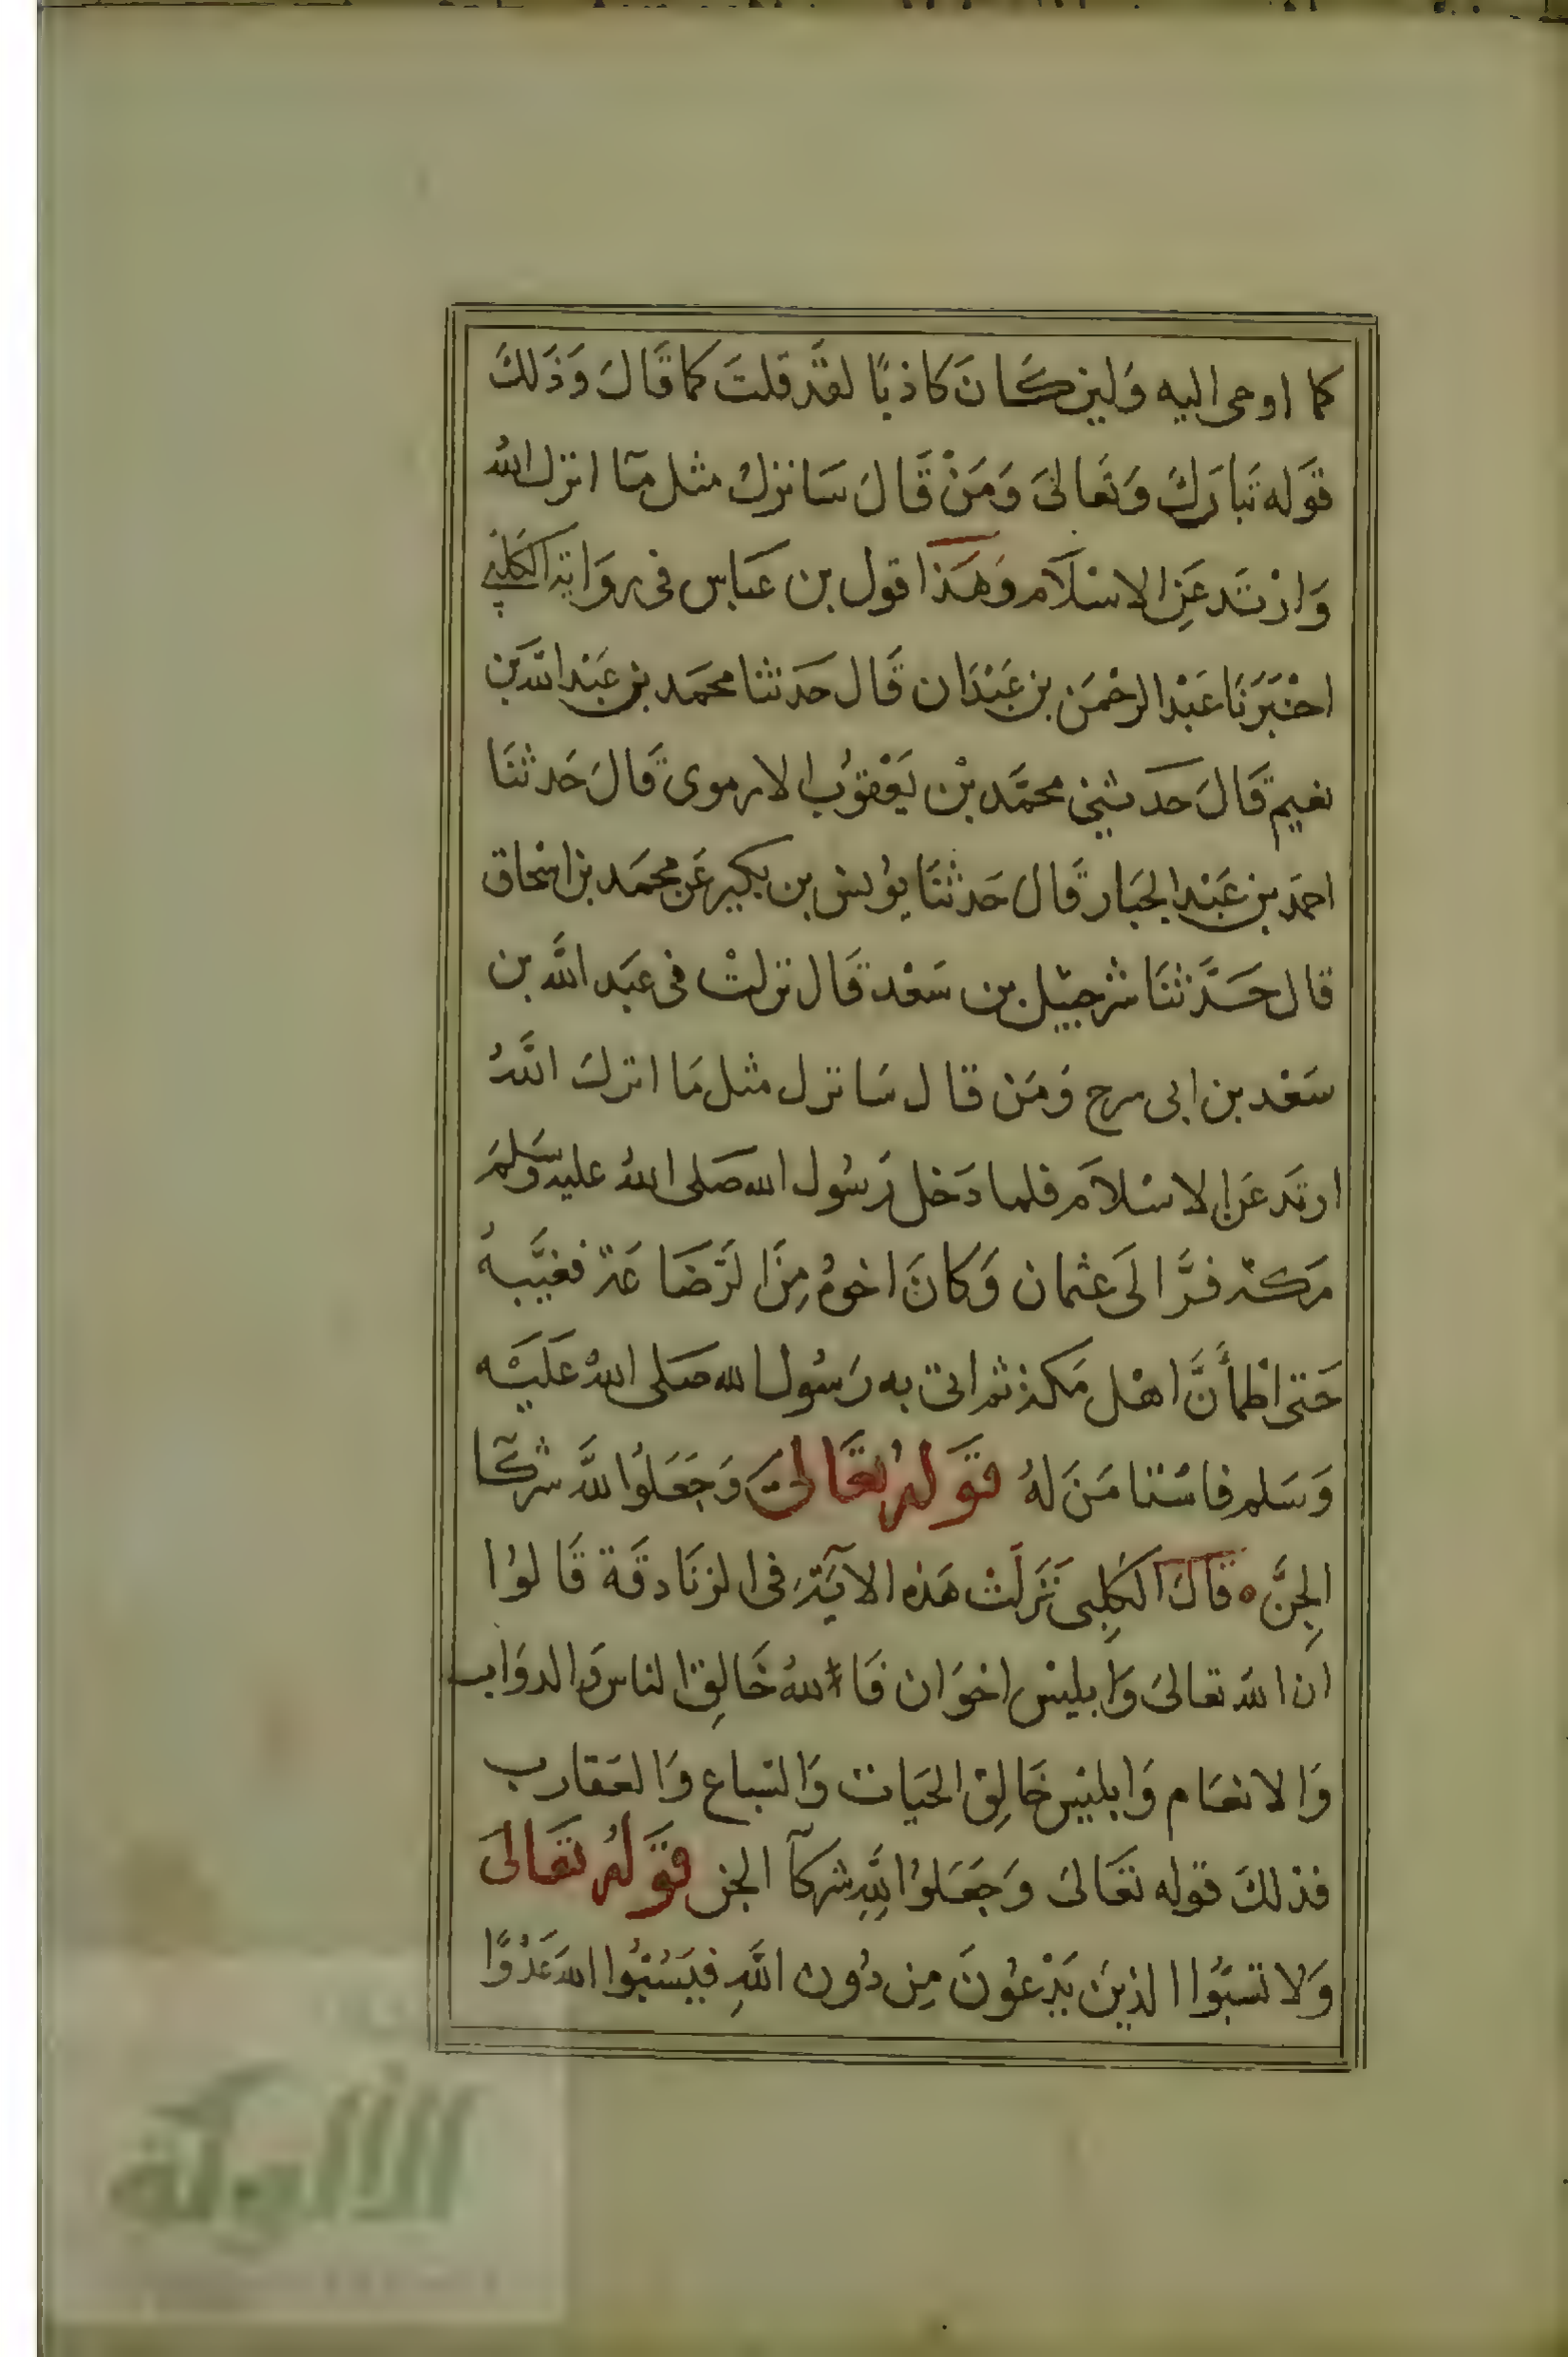 كما اوحى اليه وَلين كَانَ كاذبًا لقد قلتَ كما قَالَ وَذَلكَ
قَوله تَبارَكَ وَتَعالىَ وَمَنْ قَالَ سَانزلُ مثل مَا انزل اللهُ
وَارْتَد عَنِ الاسْلَام وَهَذا قول بن عَباس فى روَاية الكَلبى
اخْبَرَنَا عَبْد الرحْمَن بن عَبْدَان قَال حَدثنا محمَد بن عَبْد الله بن
نعيم قَالَ حَدثنى محمَّد بْن يَعْقوُب الارموى قَالَ حَدثنَا
احمَد بن عَبْد الجبَار قَال حَدثنَا يوُنس بن بكير عَن محمَد بن اسْحاق
قال حَدَّثنَا شرحبيل بن سَعْد قَال نزلتْ فى عَبد الله بن
سَعْد بن ابى سرح وَمَن قال سَانزل مثل مَا انزلَ اللَّهُ
ارتَد عَن الاسْلاَم فلما دَخل رَسُول الله صَلى اللهُ عليه وَسَلمَ
مَكة فرَّ الىَ عثمان وَكانَ اخوهُ مِنَ الرَضَاعَة فغيَّبهُ
حَتى اطْمأَنَّ اهْل مَكة ثم اتى به رَسُول الله صَلى اللهُ عَلَيْه
وَسَلم فاسْتامَنَ لهُ قَولهُ تعَالىَ وَجَعَلوُا للهِ شركآ
الجِنَّ ه قالَ الكلِبى نَزلَتْ هَذه الآيَة فى الزنَادقَة قَالوُا
ان الله تعالىَ وَابليْس اخوَان فَا لله خَالِق الناس وَالدوَاب
وَالانعَام وَابليْس خَالِق الحيَات وَالسباع وَالعَقارب
فذلكَ قوله تعَالىَ وَجَعَلوُا للهِ شركآ الجن قَولهُ تعَالىَ
وَلا تسَبُّوا الذينَ يَدْعُونَ مِن دُون اللَّهِ فيَسُبُّوا اللهَ عَدْوًا
الألوكة